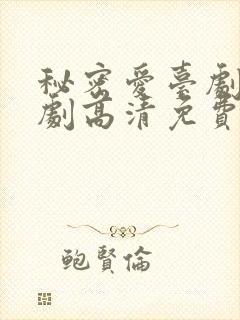 秘密愛臺劇
劇高清免費
鮑賢倫